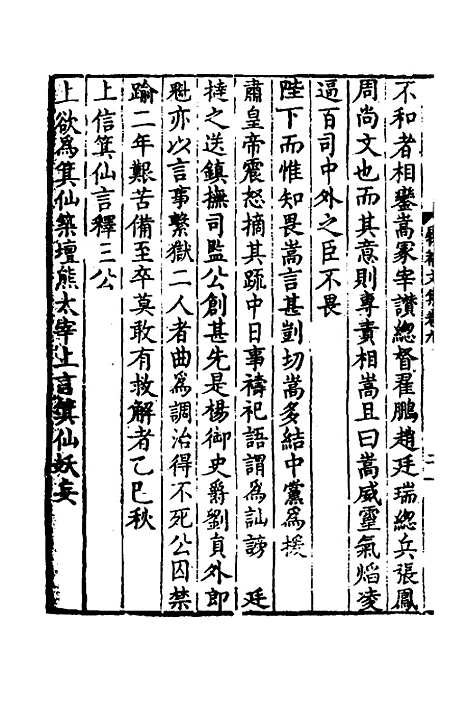 不和者相鏖嵩冢宰讚總督翟鵬趙廷瑞總兵張鳳
周尚文也而其意則專責相嵩且曰嵩威靈氣焰凌
逼百司中外之臣不畏
陛下而惟知畏嵩言甚剴切嵩多結中黨爲援
肅皇帝震怒摘其疏中日事禱祀語謂爲訕謗　廷
捶之送鎮撫司監公創甚先是楊御史爵劉員外郎
魁亦以言事繫獄二人者曲爲調治得不死公囚禁
踰二年艱苦備至卒莫敢有救解者乙巳秋
上信箕仙言釋三公
上欲爲箕仙築壇熊太宰上言箕仙妖妄